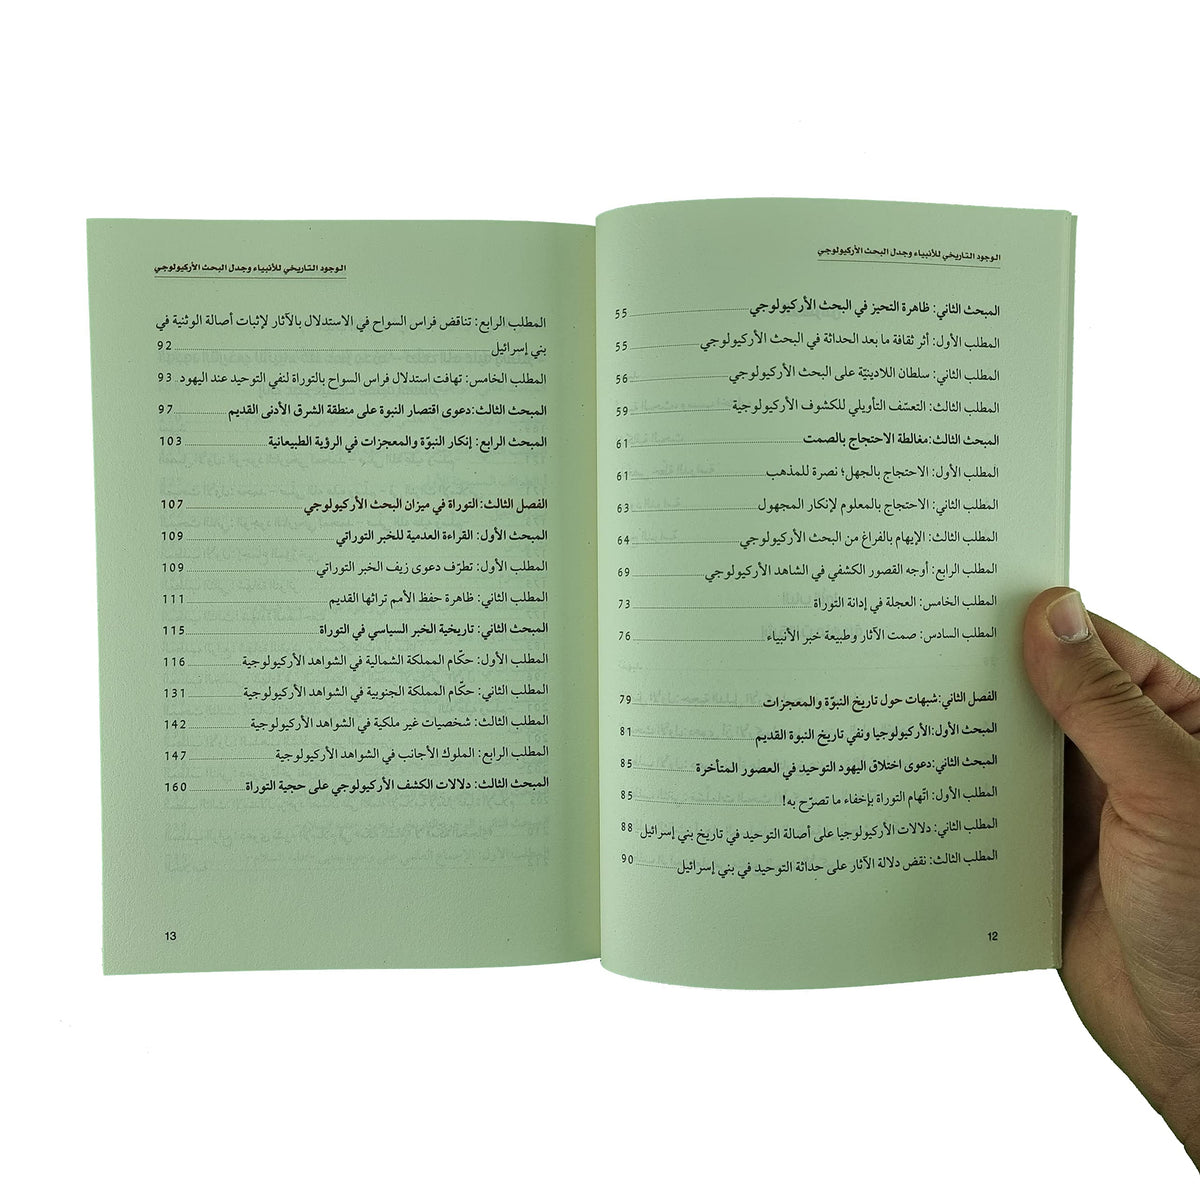 الوجود التاريخي للأنبياء وجدل البحث الأركيولوجي
المبحث الثاني: ظاهرة التحيز في البحث الأركيولوجي 55
المطلب الأول: أثر ثقافة ما بعد الحداثة في البحث الأركيولوجي 55
المطلب الثاني: سلطان اللادينيّة على البحث الأركيولوجي 56
المطلب الثالث: التعسّف التأويلي للكشوف الأركيولوجية 59
المبحث الثالث:مغالطة الاحتجاج بالصمت 61
المطلب الأول: الاحتجاج بالجهل؛ نصرة للمذهب 61
المطلب الثاني: الاحتجاج بالمعلوم لإنكار المجهول 63
المطلب الثالث: الإيهام بالفراغ من البحث الأركيولوجي 64
المطلب الرابع: أوجه القصور الكشفي في الشاهد الأركيولوجي 69
المطلب الخامس: العجلة في إدانة التوراة 73
المطلب السادس: صمت الآثار وطبيعة خبر الأنبياء 76
الفصل الثاني:شبهات حول تاريخ النبوّة والمعجزات 79
المبحث الأول:الأركيولوجيا ونفي تاريخ النبوة القديم 81
المبحث الثاني:دعوى اختلاق اليهود التوحيد في العصور المتأخرة 85
المطلب الأول: اتّهام التوراة بإخفاء ما تصرّح به! 85
المطلب الثاني: دلالات الأركيولوجيا على أصالة التوحيد في تاريخ بني إسرائيل 88
المطلب الثالث: نقض دلالة الآثار على حداثة التوحيد في بني إسرائيل 90
12
الوجود التاريخي للأنبياء وجدل البحث الأركيولوجي
المطلب الرابع: تناقض فراس السواح في الاستدلال بالآثار لإثبات أصالة الوثنية في
بني إسرائيل 92
المطلب الخامس: تهافت استدلال فراس السواح بالتوراة لنفي التوحيد عند اليهود 93
المبحث الثالث:دعوى اقتصار النبوة على منطقة الشرق الأدنى القديم 97
المبحث الرابع: إنكار النبوّة والمعجزات في الرؤية الطبيعانية 103
الفصل الثالث: التوراة في ميزان البحث الأركيولوجي 107
المبحث الأول: القراءة العدمية للخبر التوراتي 109
المطلب الأول: تطرّف دعوى زيف الخبر التوراتي 109
المطلب الثاني: ظاهرة حفظ الأمم تراثها القديم 111
المبحث الثاني: تاريخية الخبر السياسي في التوراة 115
المطلب الأول: حكّام المملكة الشمالية في الشواهد الأركيولوجية 116
المطلب الثاني: حكّام المملكة الجنوبية في الشواهد الأركيولوجية 131
المطلب الثالث: شخصيات غير ملكية في الشواهد الأركيولوجية 142
المطلب الرابع: الملوك الأجانب في الشواهد الأركيولوجية 147
المبحث الثالث: دلالات الكشف الأركيولوجي على حجية التوراة 160
13